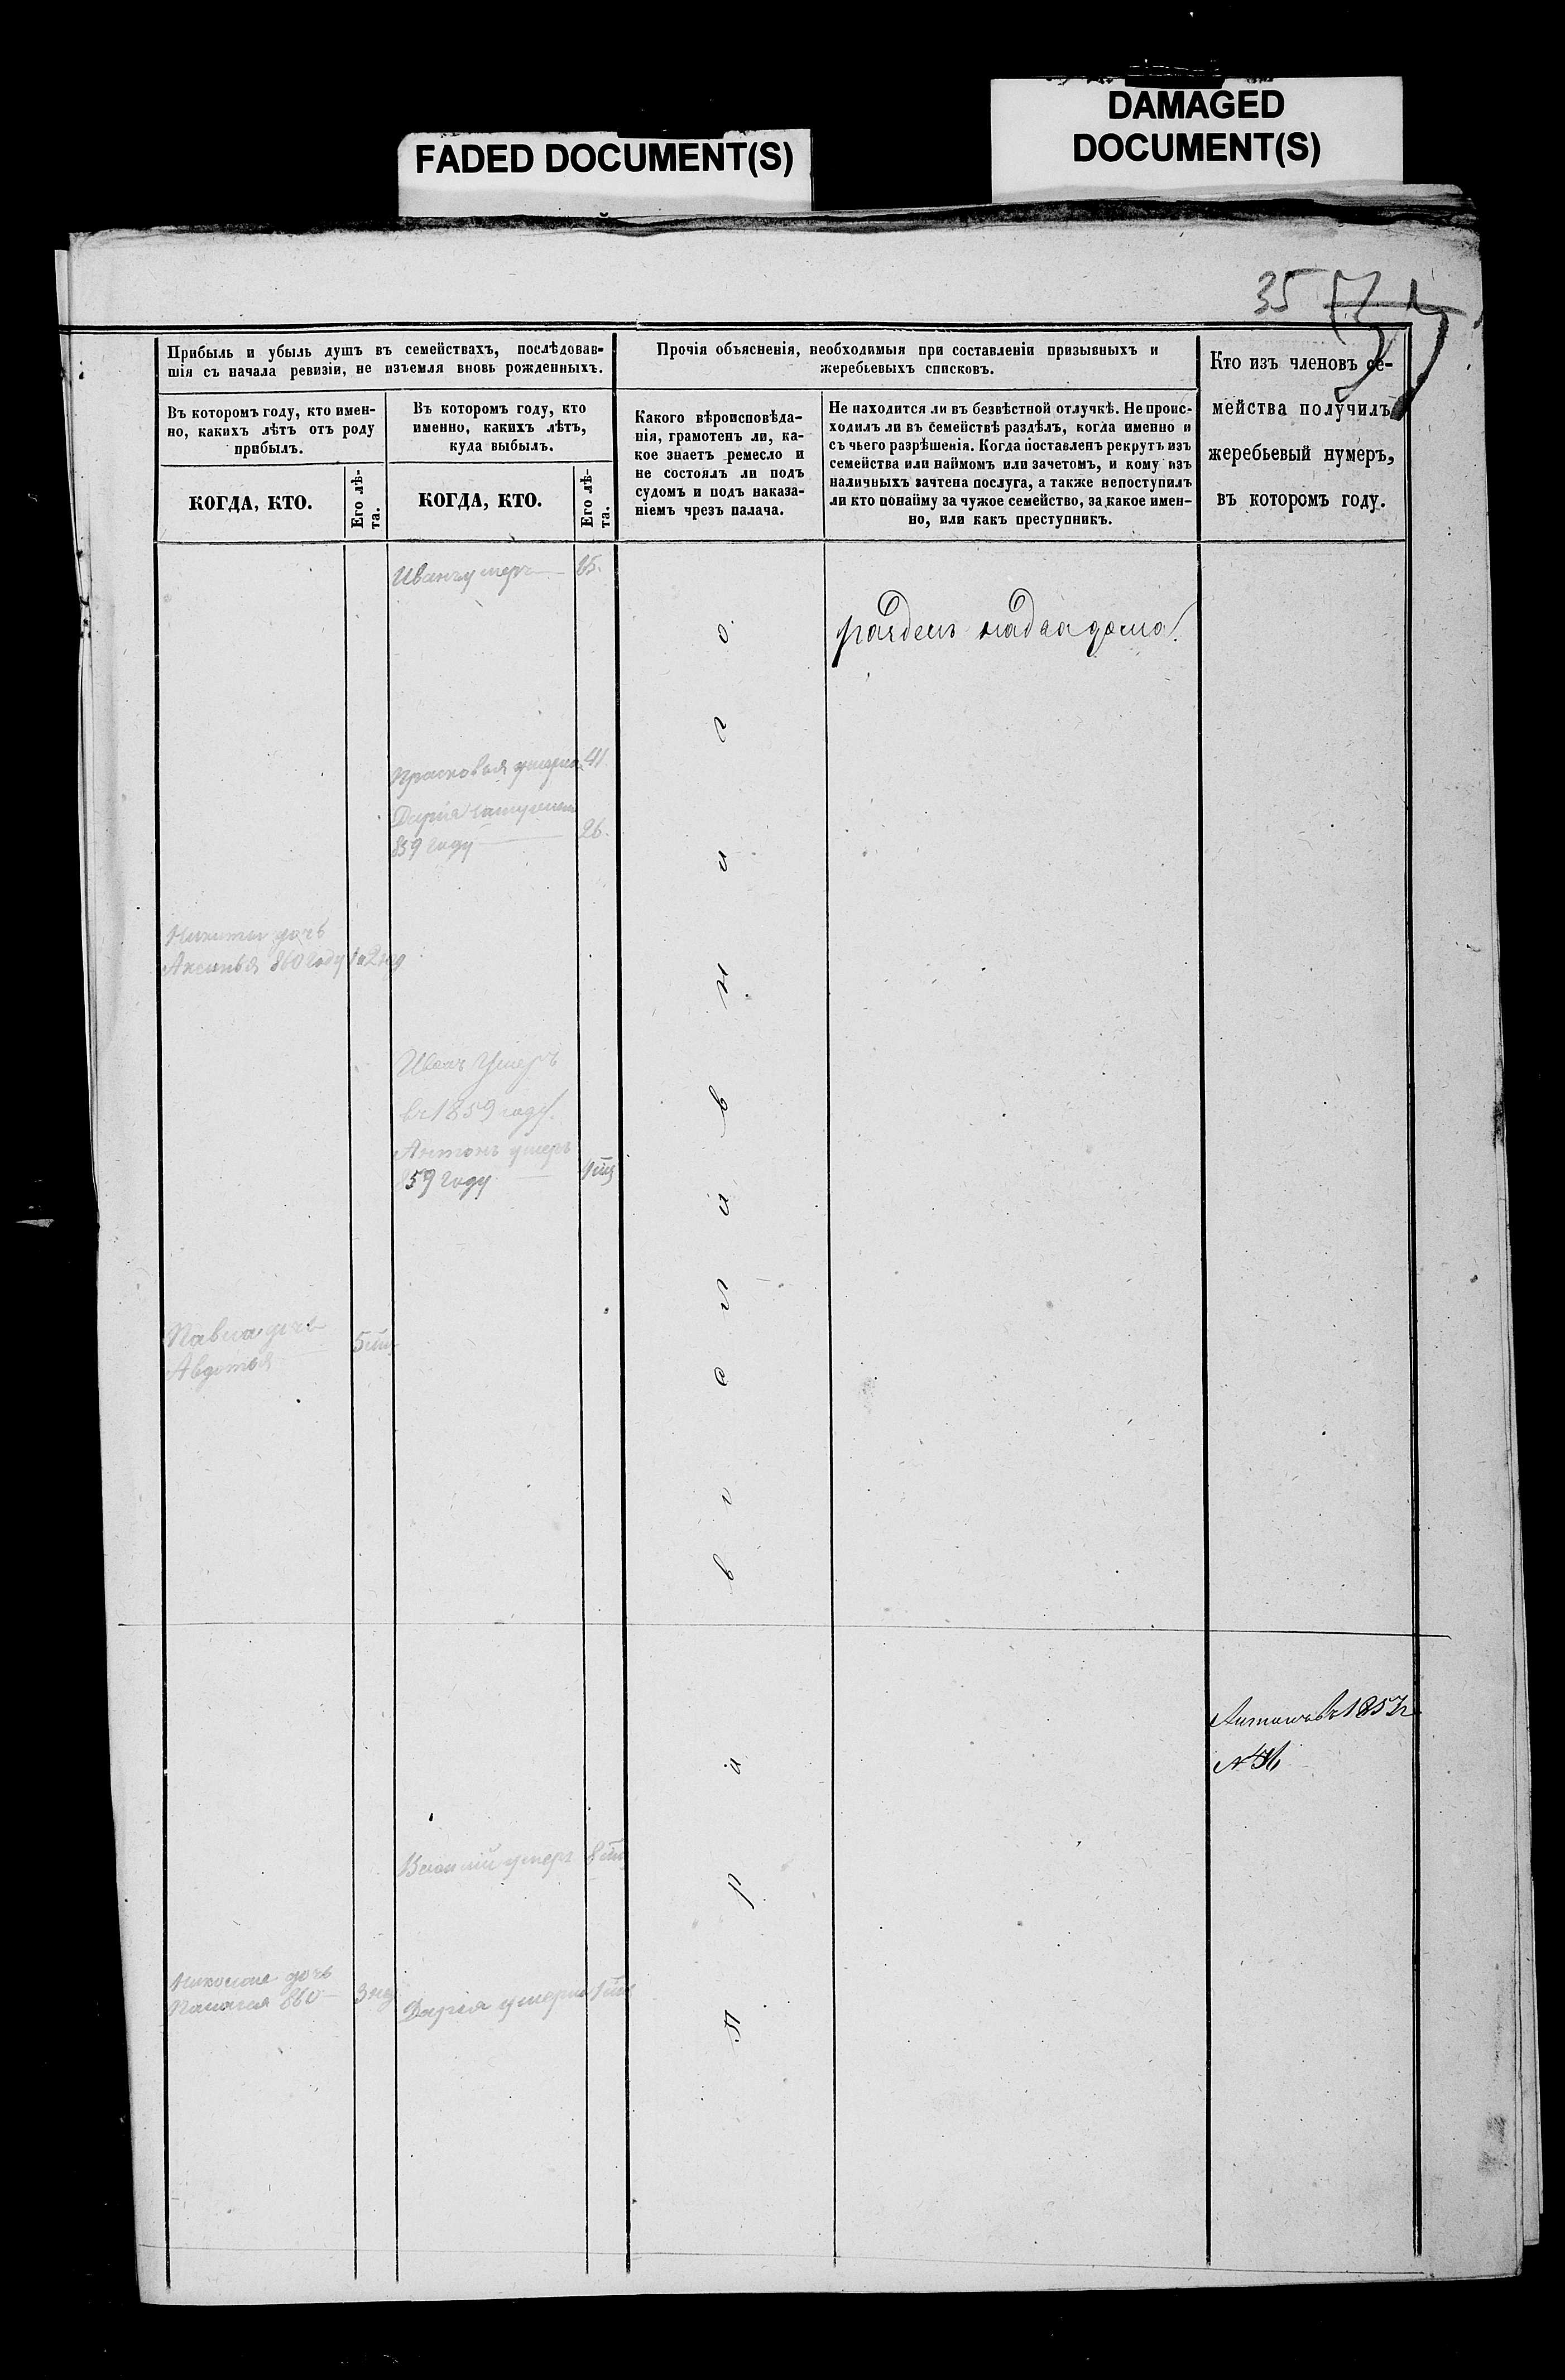 FADED DOCUMENT(S)
DAMAGED
DOCUMENT(S)
35
Прибыль и убыль душъ въ семействахъ, послѣдовав-
шія съ начала ревизіи, не изъемля вновь рожденныхъ.
Въ которомъ году, кто имен-
но, какихъ лѣтъ отъ роду
прибылъ.
Въ которомъ году, кто
именно, какихъ лѣтъ,
куда выбылъ.
КОГДА, КТО.
Его лѣ-
та.
КОГДА, КТО.
Его лѣ-
та.
Прочія объясненія, необходимыя при составленіи призывныхъ и
жеребьевыхъ списковъ.
Какого вѣроисповѣда-
нія, грамотенъ ли, ка-
кое знаетъ ремесло и
не состоялъ ли подъ
судомъ и подъ наказа-
ніемъ чрезъ палача.
Не находится ли въ безвѣстной отлучкѣ. Не проис-
ходилъ ли въ семействѣ раздѣлъ, когда именно и
съ чьего разрѣшенія. Когда поставленъ рекрутъ изъ
семейства или наймомъ или зачетомъ, и кому изъ
наличныхъ зачтена послуга, а также непоступилъ
ли кто понайму за чужое семейство, за какое имен-
но, или какъ преступникъ.
Кто изъ членовъ се-
мейства получилъ
жеребьевый нумеръ,
въ которомъ году.
Иванъ умеръ
надвадома
Прасковья умерла 41.
Дарья замужем
859 году 26.
Никиты дочь
Аксинья 860 году
Иванъ Умеръ
въ 1859 году.
Антонъ умеръ
859 году
Павла дочь
Авдотья
Антонъ въ 1853 г
Василій умеръ
Николая дочь
860 3 нед
Дарья умерла